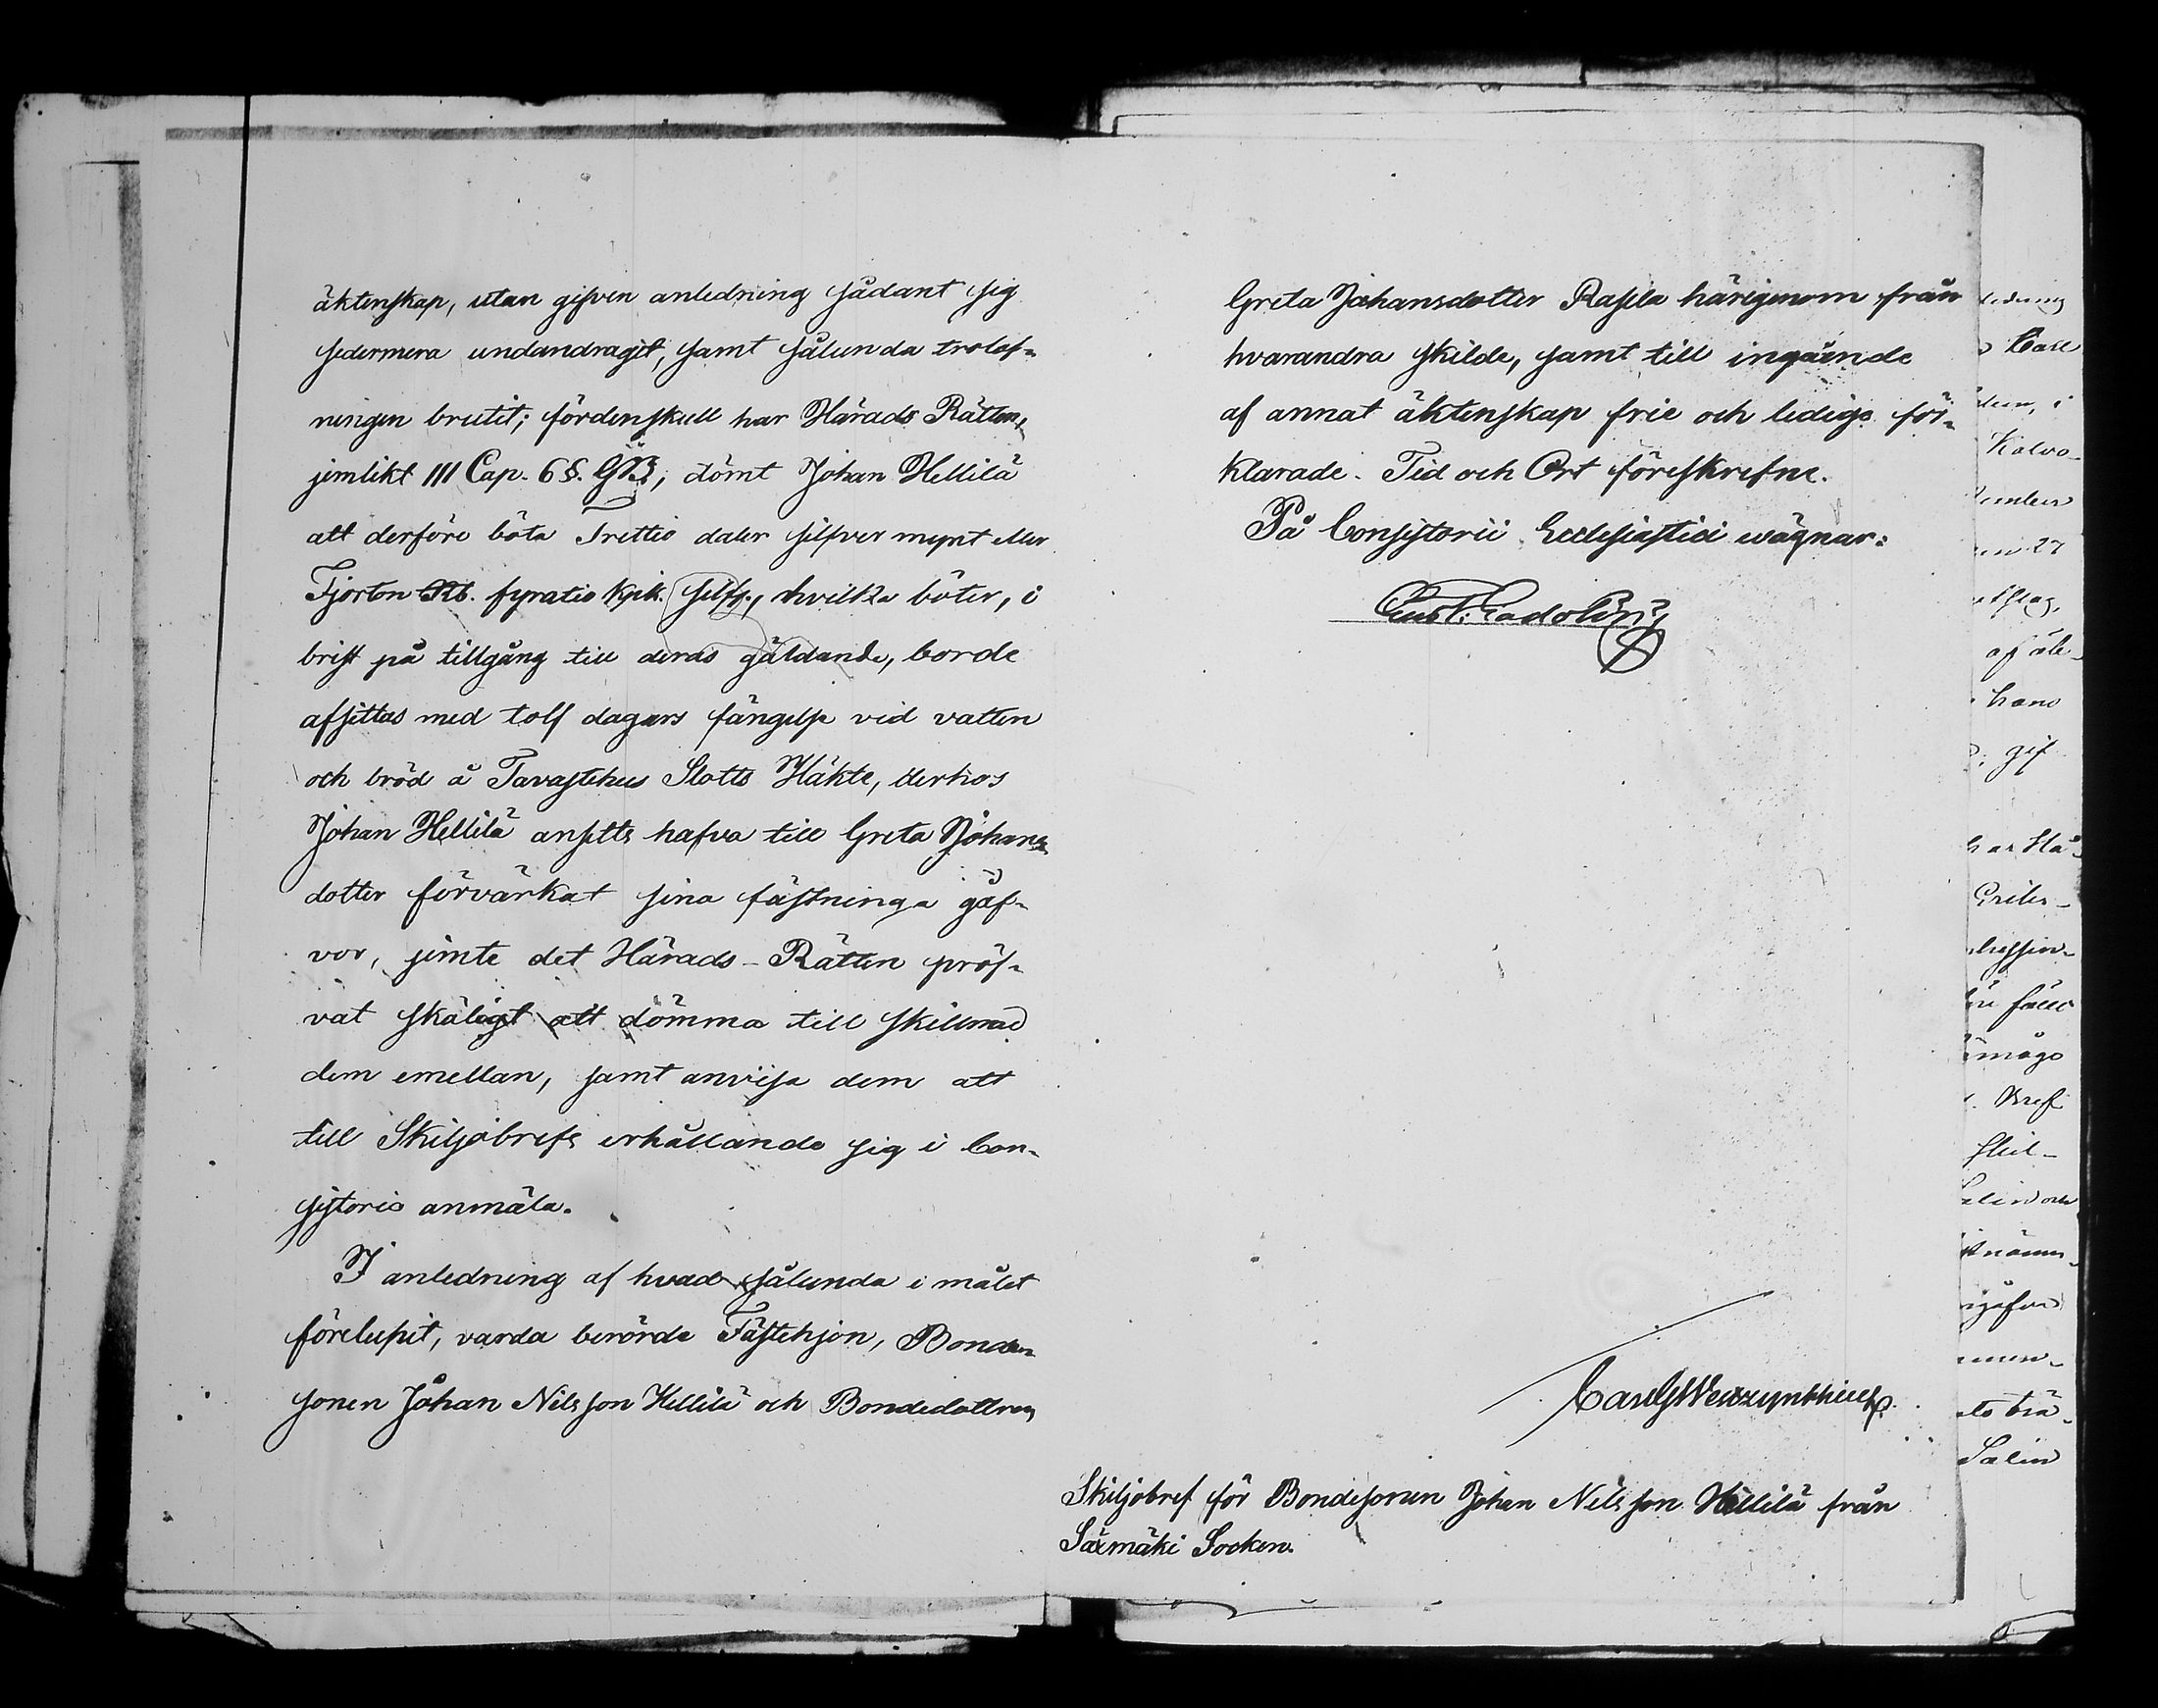 äktenskap, utan gifven anledning sådant sig
sedermera undandragit, samt sålunda trolof-
ningen brutit; fördenskull har Härads Rätten,
jemlikt III Cap. 6 §. G.B., dömt Johan Hellilä
att derföre böta Trettio daler silfver mynt eller
Fjorton Rb. fyratio kpk. silfr., hvilka böter, i
brist på tillgång till deras gäldande, borde
afsittas med tolf dagars fängelse vid vatten
och bröd å Tavastehus Slotts Häkte, derhos
Johan Hellilä ansetts hafva till Greta Johans
dotter förvärkat sina fästninga gåf-
vor, jemte det Härads-Rätten pröf-
vat skäligt att dömma till skillnad
dem emellan, samt anvisa dem att
till Skiljobrefs erhållande sig i Con-
sistorio anmäla.
I anledning af hvad sålunda i målet
förelupit, varda berörde Fästehjon, Bonde-
sonen Johan Nilsson Hellilä och Bondedottren
Greta Johansdotter Rassla härigenom från
hvarandra skilde, samt till ingående
af annat äktenskap frie och ledige för-
klarade. Tid och Ort föreskrefne.
På Consistorii Ecclesiastici wägnar:
Gust. Gadolin
Skiljobref för Bondesonen Johan Nilsson Hellilä från
Säxmäki Socken.
ledning
Carl
i
Kalvo-
27
af äk-
hans
gif
har Hä-
fall
måge
Bref
Skil-
och
Salin